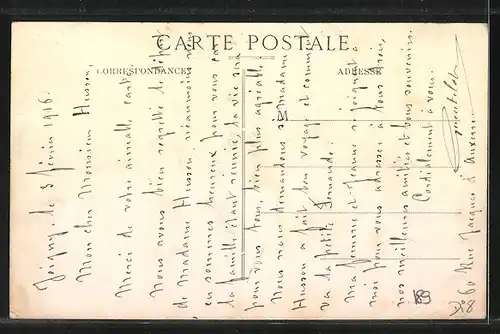 CARTE POSTALE
CORRESPONDANCE
ADRESSE
Joigny, le 3 février 1916.
Mon cher Monsieur Husson,
Merci de votre aimable carte.
Nous avons bien regretté le départ
de Madame Husson, néanmoins nous
en sommes heureux pour vous car
la famille étant réunie, la vie sera
pour vous tous, bien plus agréable
Nous nous demandons si madame
Husson a fait bon voyage et comment
va la petite Fernande.
Ma femme et Jeanne se joignent à
moi pour vous adresser à tous trois,
nos meilleures amitiés et bons souvenirs.
Cordialement à vous.
60 Rue Jacques d'Auxerre